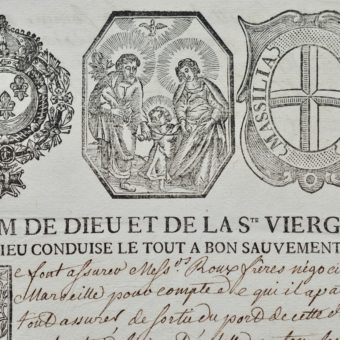 MASSILIA
M DE DIEU ET DE LA Sᵀᴱ VIERG
IEU CONDUISE LE TOUT A BON SAUVEMENT
e font assurer Mess.rs Roux freres négoci
Marseille pour compte de qui il apa
tous assurés de sortie du port de cette